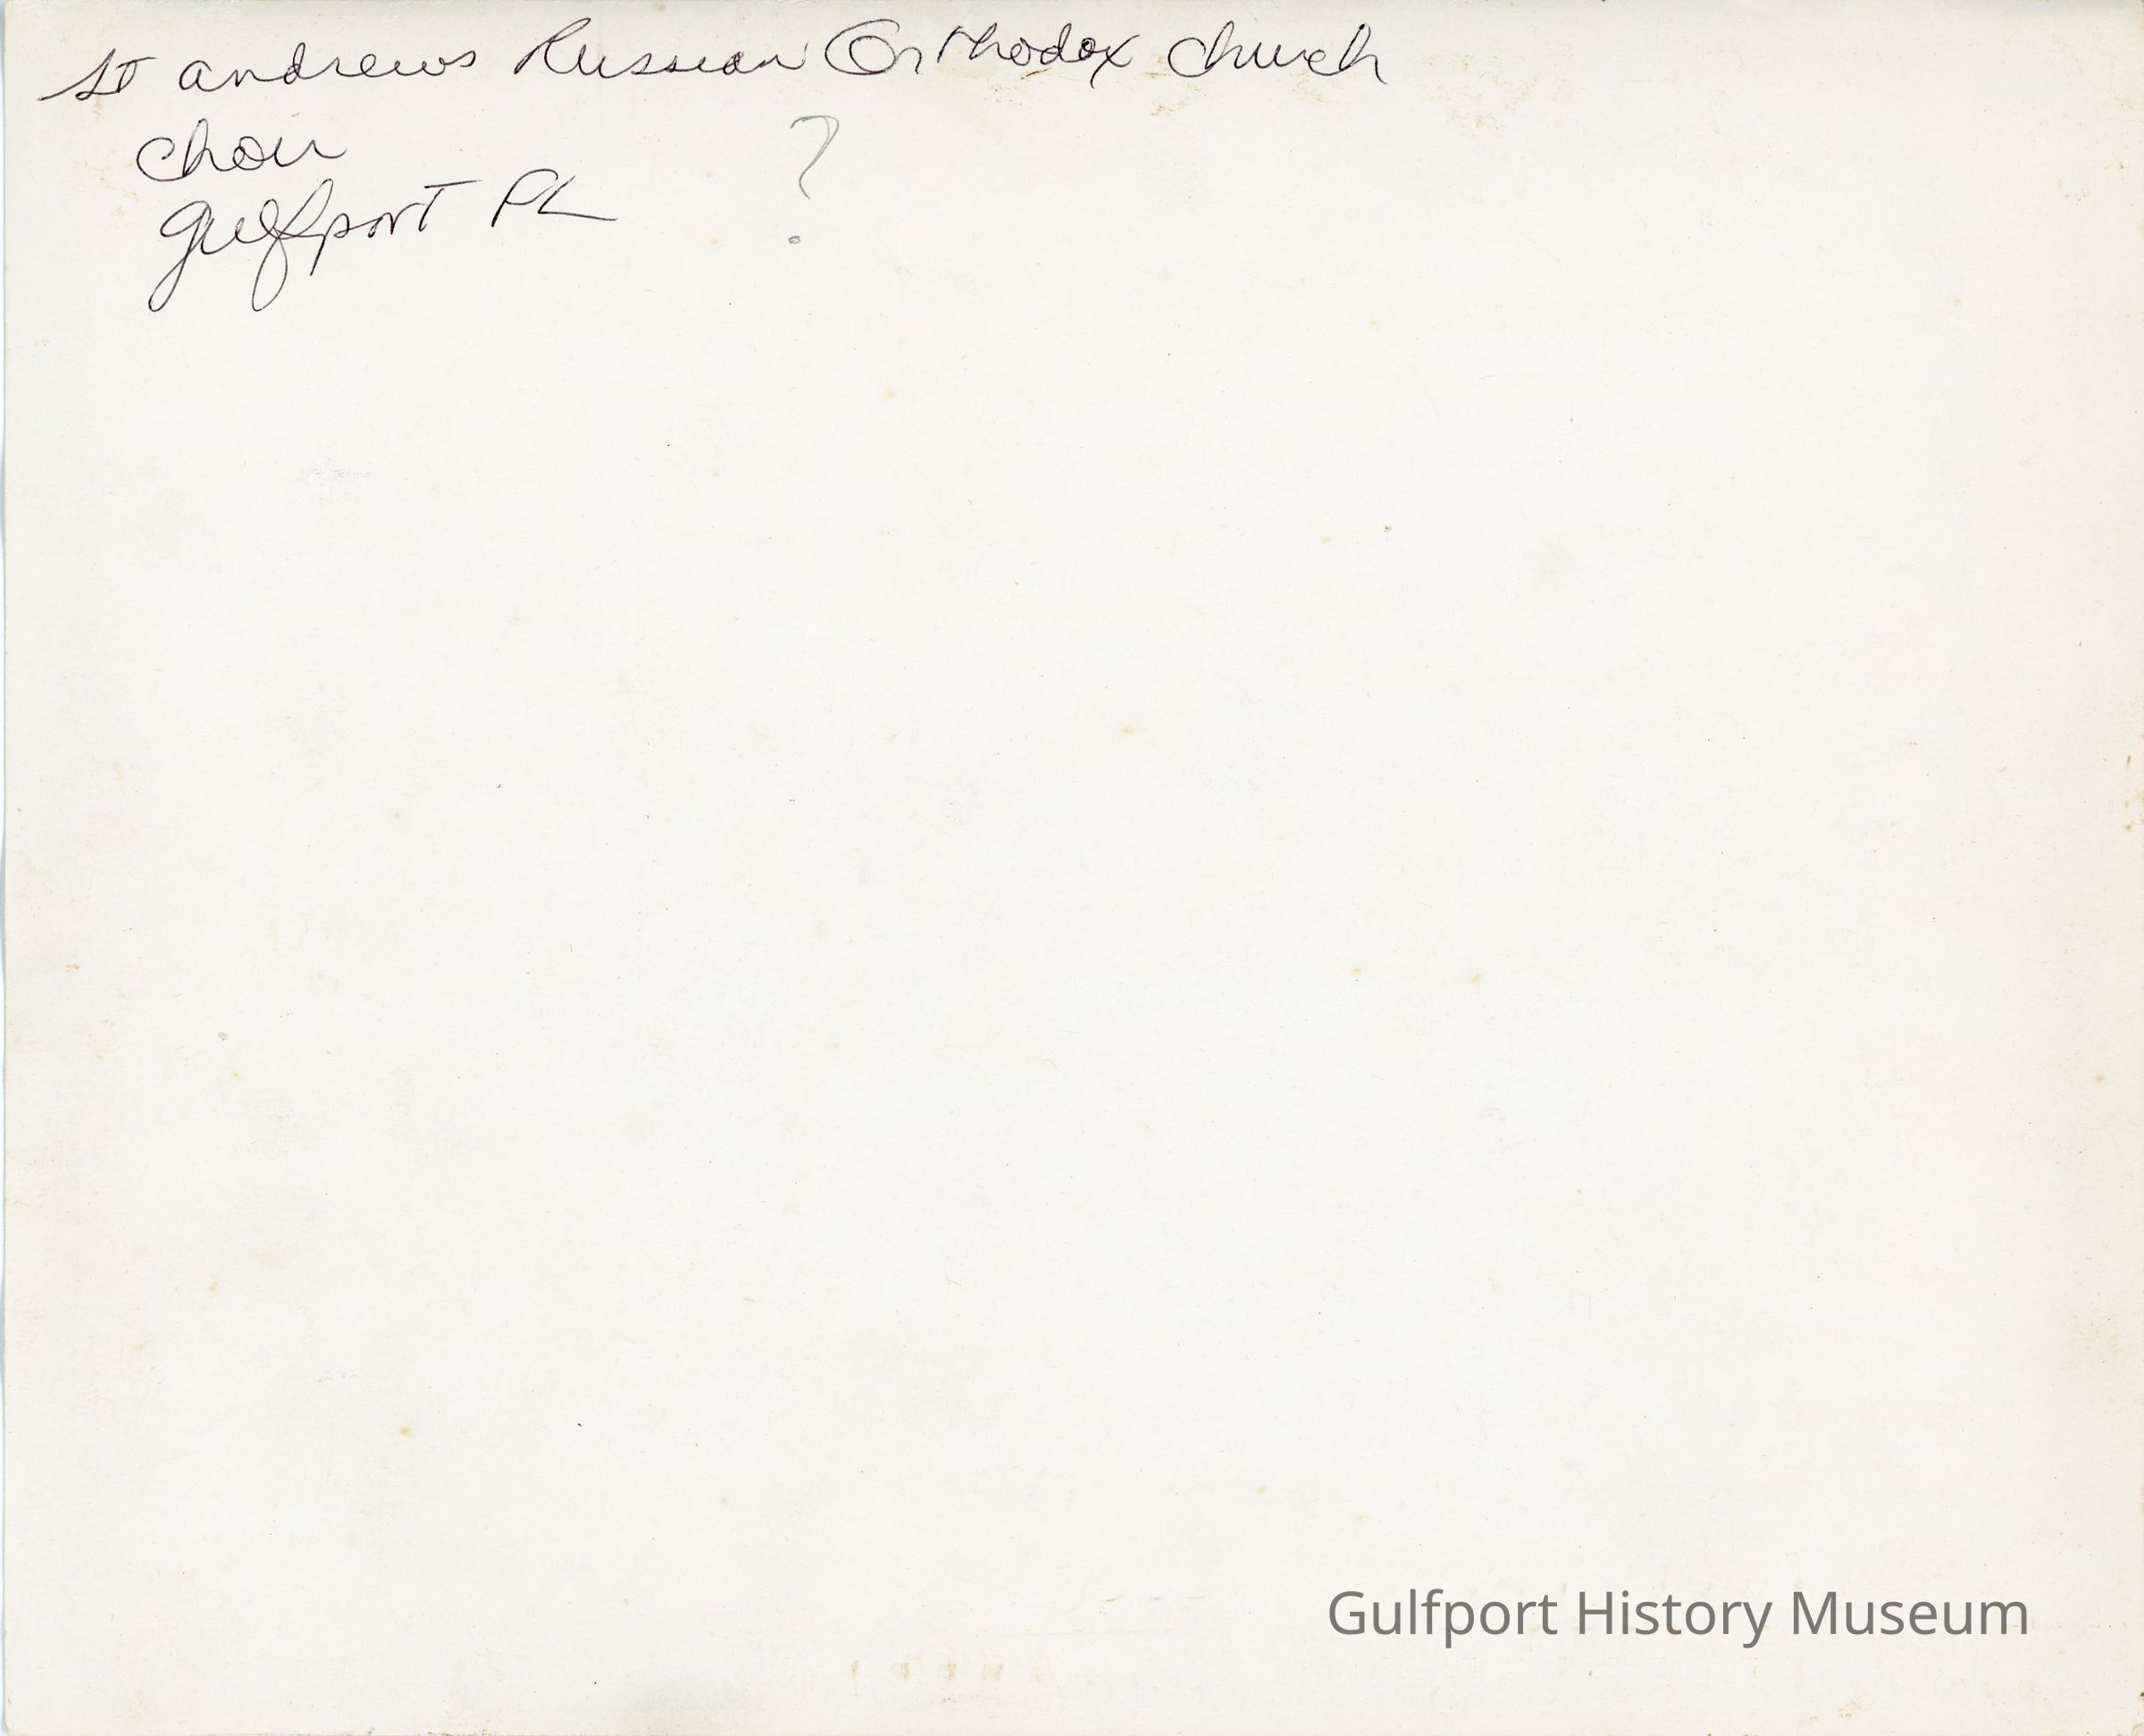 St andrews Russian Orthodox Church
Choir
?
Gulfport FL
Gulfport History Museum